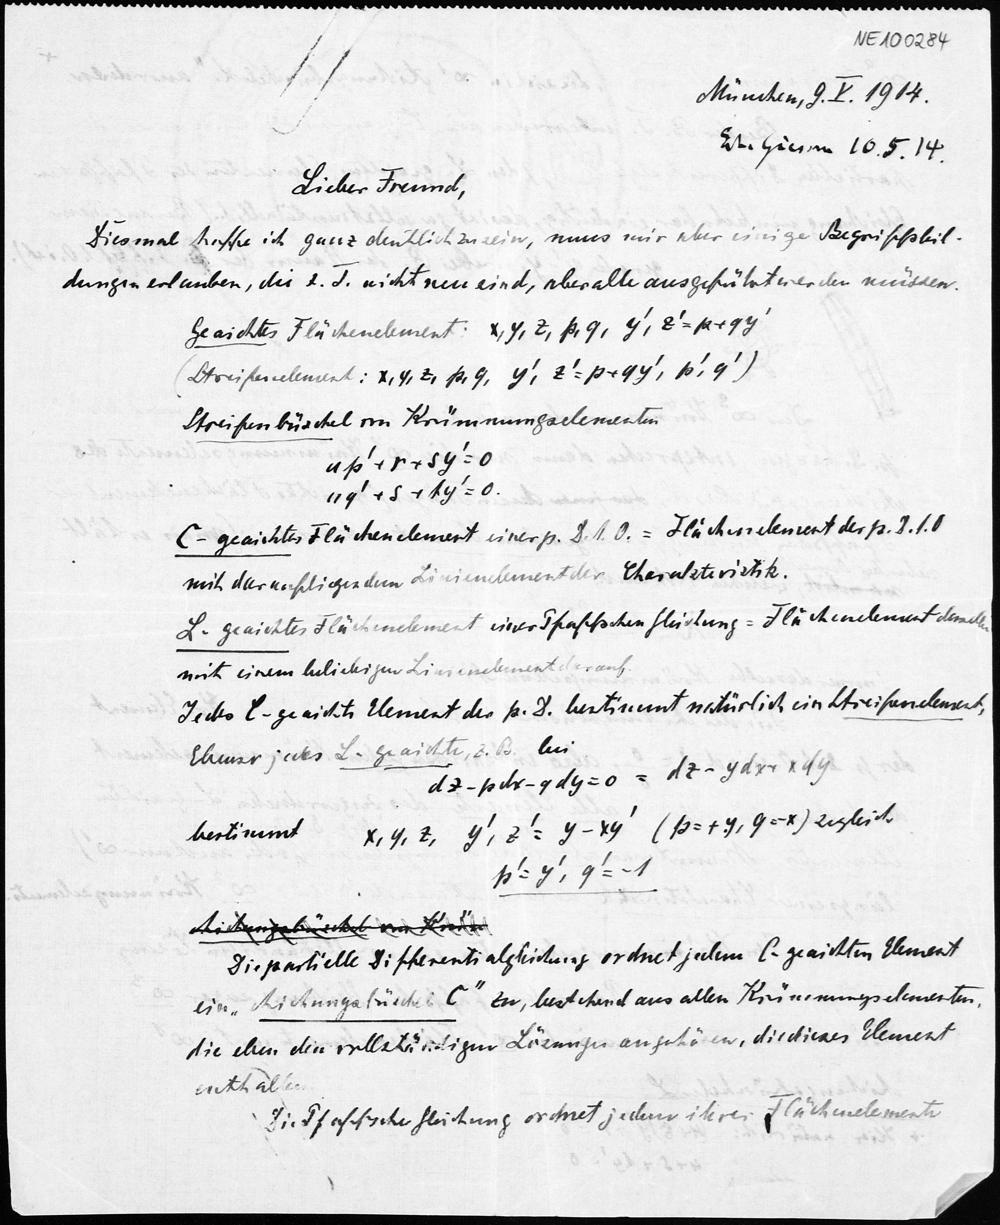 NE100284
München, 9.V. 1914.
10.5.14.
Lieber Freund,
Diesmal hoffe ich ganz deutlich zu sein, muss mir aber einige Begriffsbil-
dungen erlauben, die z. T. nicht neu sind, aber alle ausgeführt werden müssen.
Geaichtes Flächenelement: x, y, z, p, q, y', z' = p + qy'
(Streifenelement: x, y, z, p, q, y', z' = p + qy', p', q')
Streifenbüschel von Krümmungselementen
up' + r + sy' = 0
uq' + s + ty' = 0.
C-geaichtes Flächenelement einer p. D. 1. O. = Flächenelement der p. D. 1. O
mit daraufliegendem Linienelement der Charakteristik.
L-geaichtes Flächenelement einer Pfaffschen Gleichung = Flächenelement derselben
mit einem beliebigen Linienelement darauf.
Jedes C-geaichte Element der p. D. bestimmt natürlich ein Streifenelement,
Ebenso jedes L-geaichte, z. B. bei
dz - pdx - qdy = 0 = dz - ydx + xdy
bestimmt x, y, z, y', z' = y - xy' (p = +y, q = -x) zugleich
p' = y', q' = -1
Die partielle Differentialgleichung ordnet jedem C-geaichten Element
ein „Aichungsbüschel C" zu, bestehend aus allen Krümmungselementen,
die eben den vollständigen Lösungen angehören, die dieses Element
enthalten.
Die Pfaffsche Gleichung ordnet jedem ihrer Flächenelemente